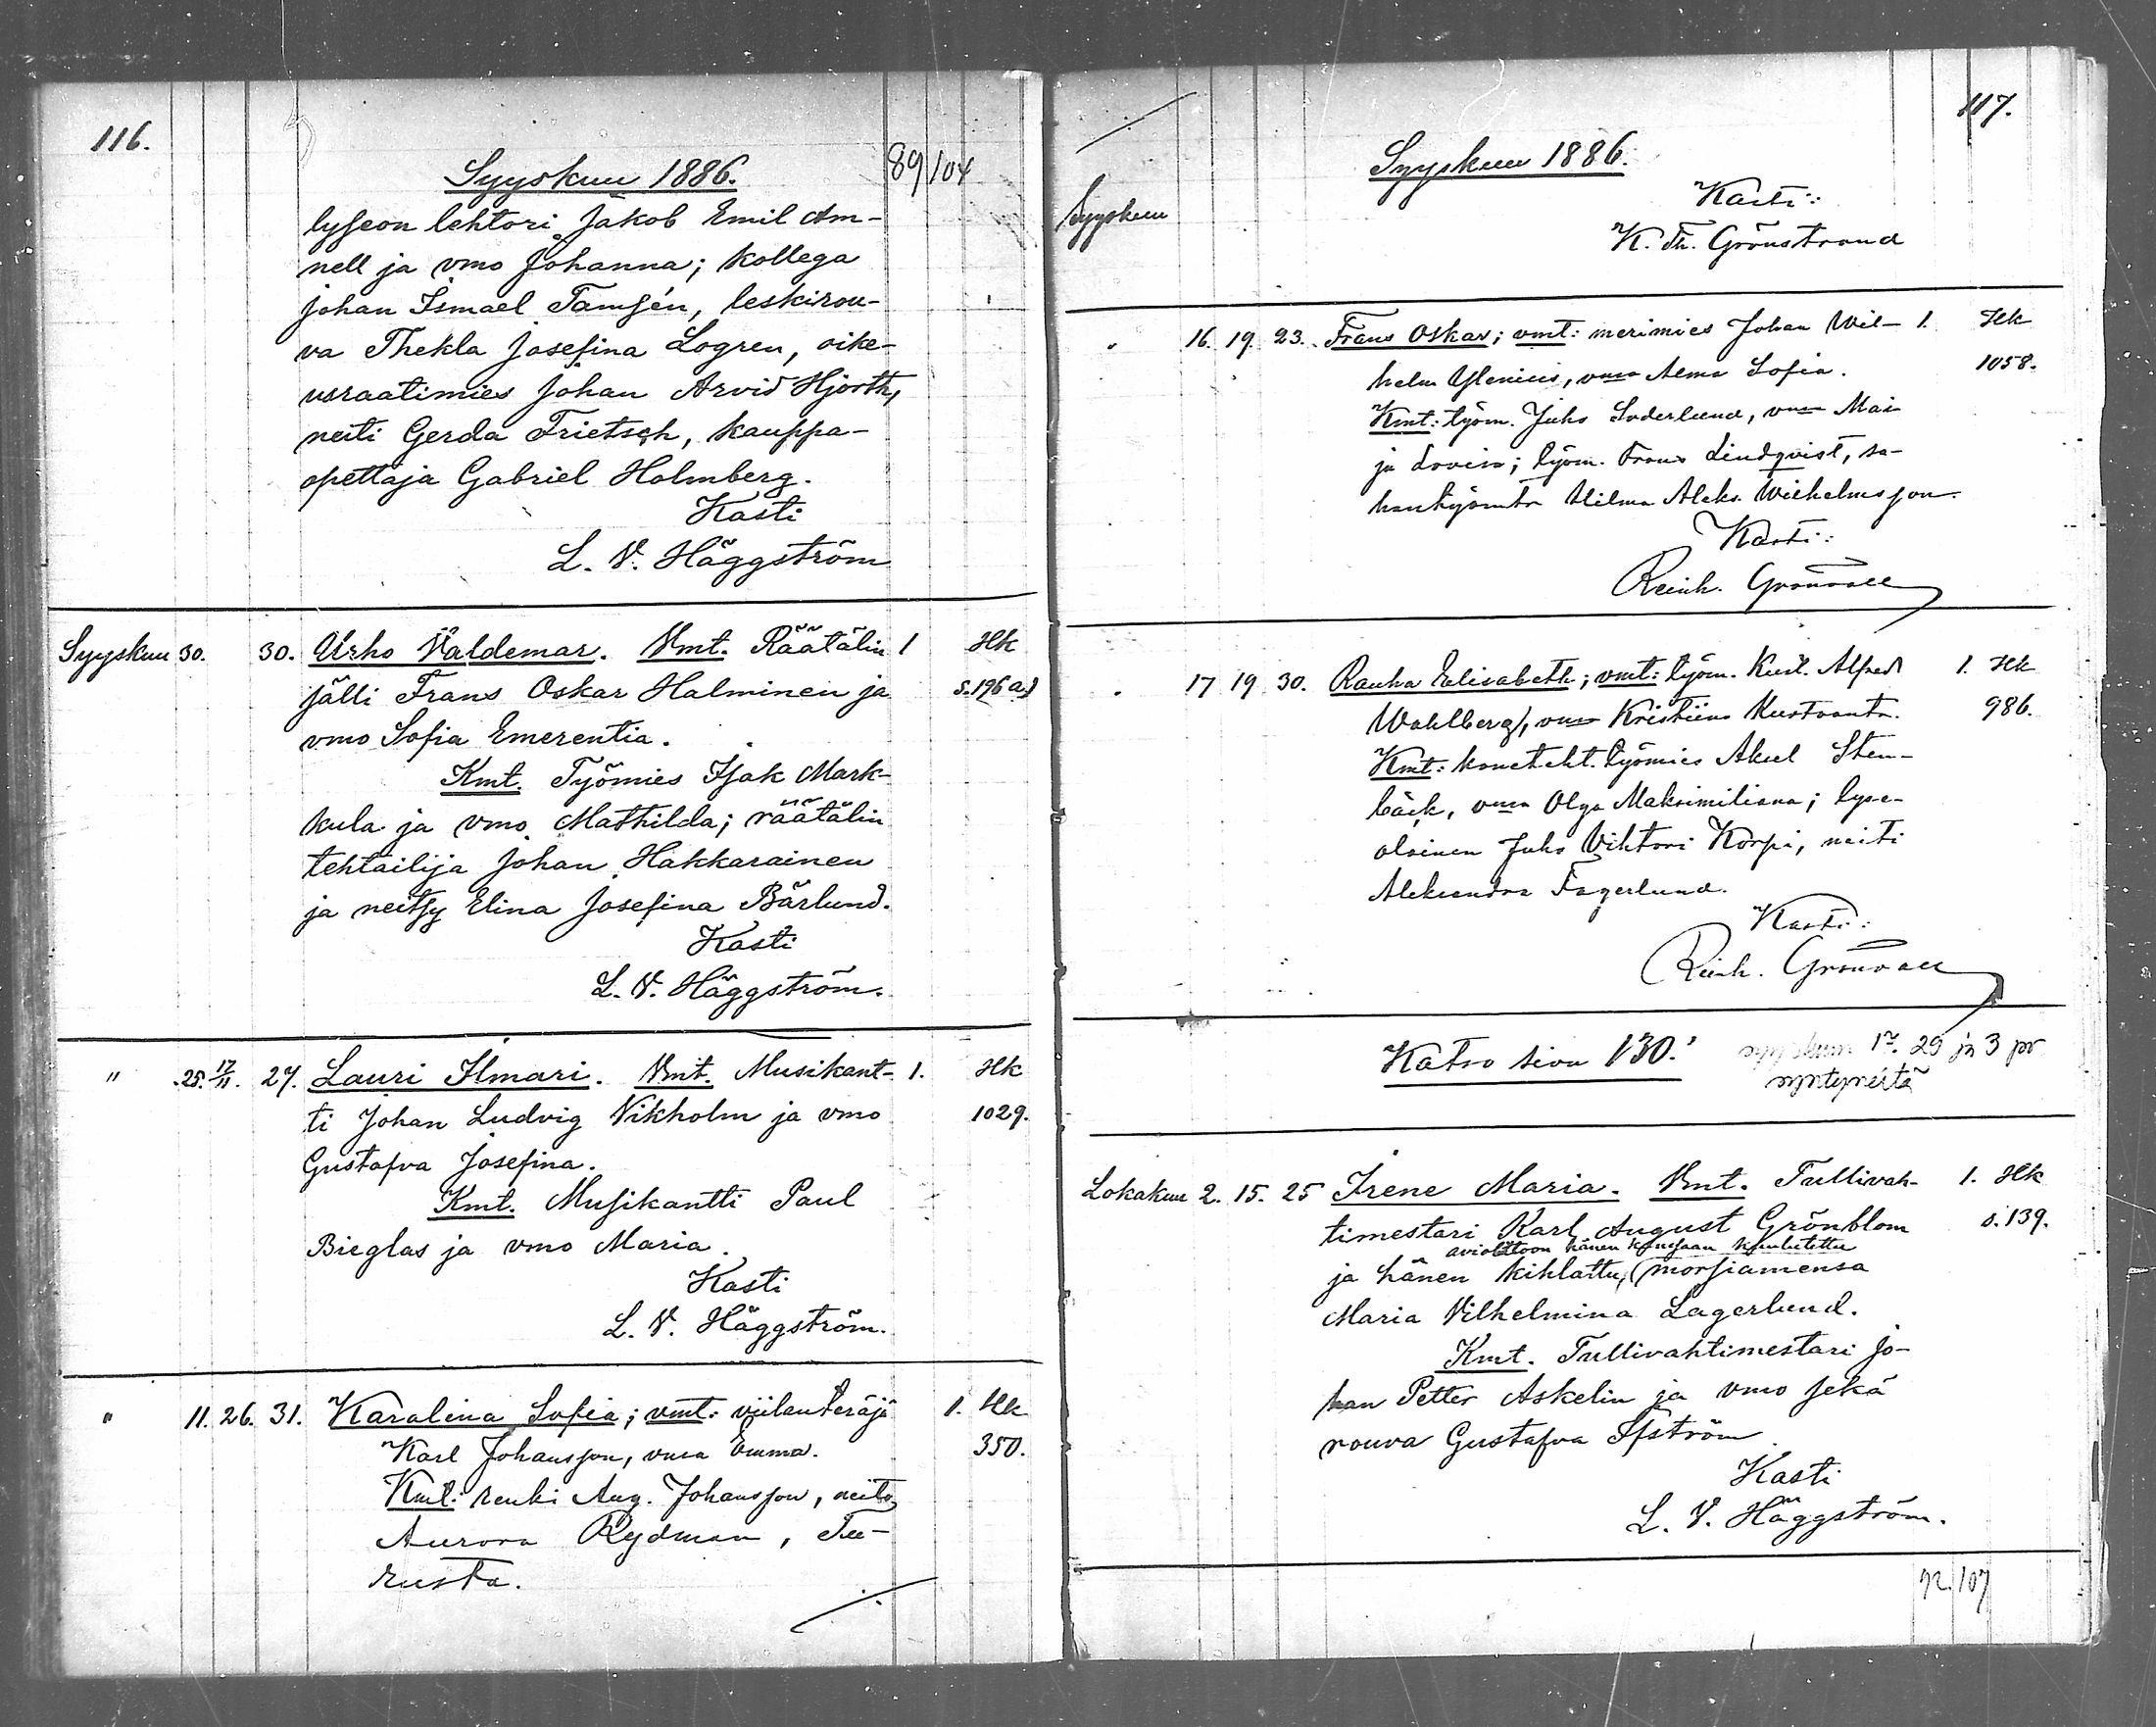 116.
Syyskuu 1886.
89/104
lyseon lehtori Jakob Emil Am-
nell ja vmo Johanna; kollega
Johan Ismael Tamsén, leskirou-
va Thekla Josefina Logren, oike-
usraatimies Johan Arvid Hjorth,
neiti Gerda Frietsch, kauppa-
opettaja Gabriel Holmberg.
Kasti
L. V. Häggström
Syyskuu 30. 30. Urho Valdemar. Vmt. Räätälin 1 Hk
sälli Frans Oskar Halminen ja s.196 a)
vmo Sofia Emerentia.
Kmt. Työmies Isak Mark-
kula ja vmo Mathilda; räätälin
tehtailija Johan Hakkarainen
ja neitsy Elina Josefina Bärlund.
Kasti
L. V. Häggström.
" 25. 17/11. 27. Lauri Ilmari. Vmt. Musikant- 1. Hk
ti Johan Ludvig Vikholm ja vmo 1029.
Gustafva Josefina.
Kmt. Musikantti Paul
Bieglas ja vmo Maria.
Kasti
L. V. Häggström.
" 11. 26. 31. Karalina Sofia; vmt: viilanteräjä 1. Hk
Karl Johansson, vmsa Emma. 350.
Kmt: renki Aug. Johansson, neito
Aurora Rydman, Tu-
rusta.
117.
Syyskuu 1886.
Syyskuu
Kasti:
K. Th. Grönstrand
" 16. 19. 23. Frans Oskar; vmt: merimies Johan Wil- 1. Hk
helm Ylenius, vmsa Alma Sofia. 1058.
Kmt: työm. Juho Soderlund, vmsa Mai-
ja Lovisa; työm. Frans Lindqvist, sa-
hantyömts Hilma Aleks. Wilhelmsson.
Kasti:
Reinh. Grönvall
" 17 19 30. Rauha Elisabeth; vmt: työm. Kust. Alfred 1. Hk
Wahlberg, vmsa Kristiina Kustaanta. 986.
Kmt: koneteht. työmies Aksel Sten-
bäck, vmsa Olga Maksimiliana; lyse-
olainen Juho Vihtori Korpi, neiti
Aleksandra Fagerlund.
Kasti:
Reinh. Grönvall
Katso sivu 130. syyskuun 17. 29 ja 3 pv
syntyneitä
Lokakuu 2. 15. 25 Irene Maria. Vmt. Tullivah- 1. Hk
timestari Karl August Grönblom s.139.
avioliittoon hänen kanssaan kuulutettu
ja hänen kihlattu, (morsiamensa
Maria Vilhelmina Lagerlund.
Kmt. Tullivahtimestari Jo-
han Petter Askelin ja vmo sekä
rouva Gustafva Sjström
Kasti
L. V. Häggström.
92/107